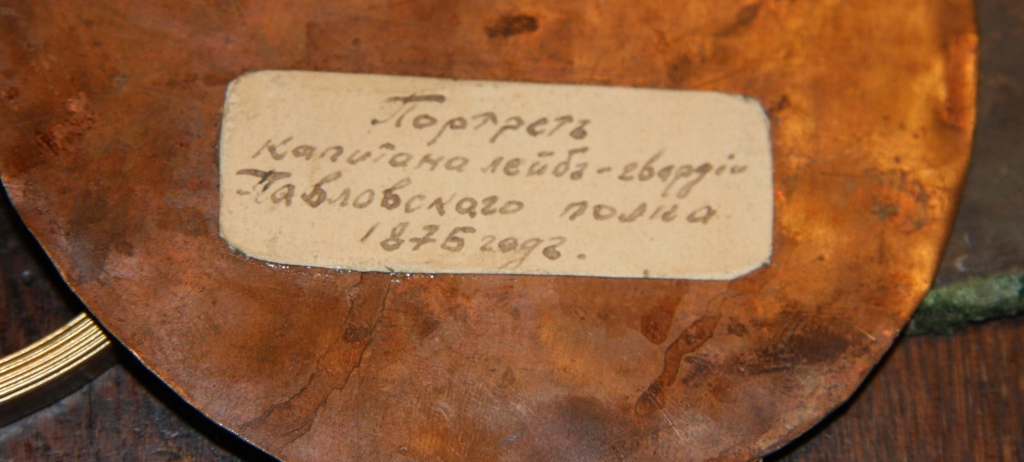 Портретъ
капитана лейбъ-гвардіи
Павловскаго полка
1875 годъ.